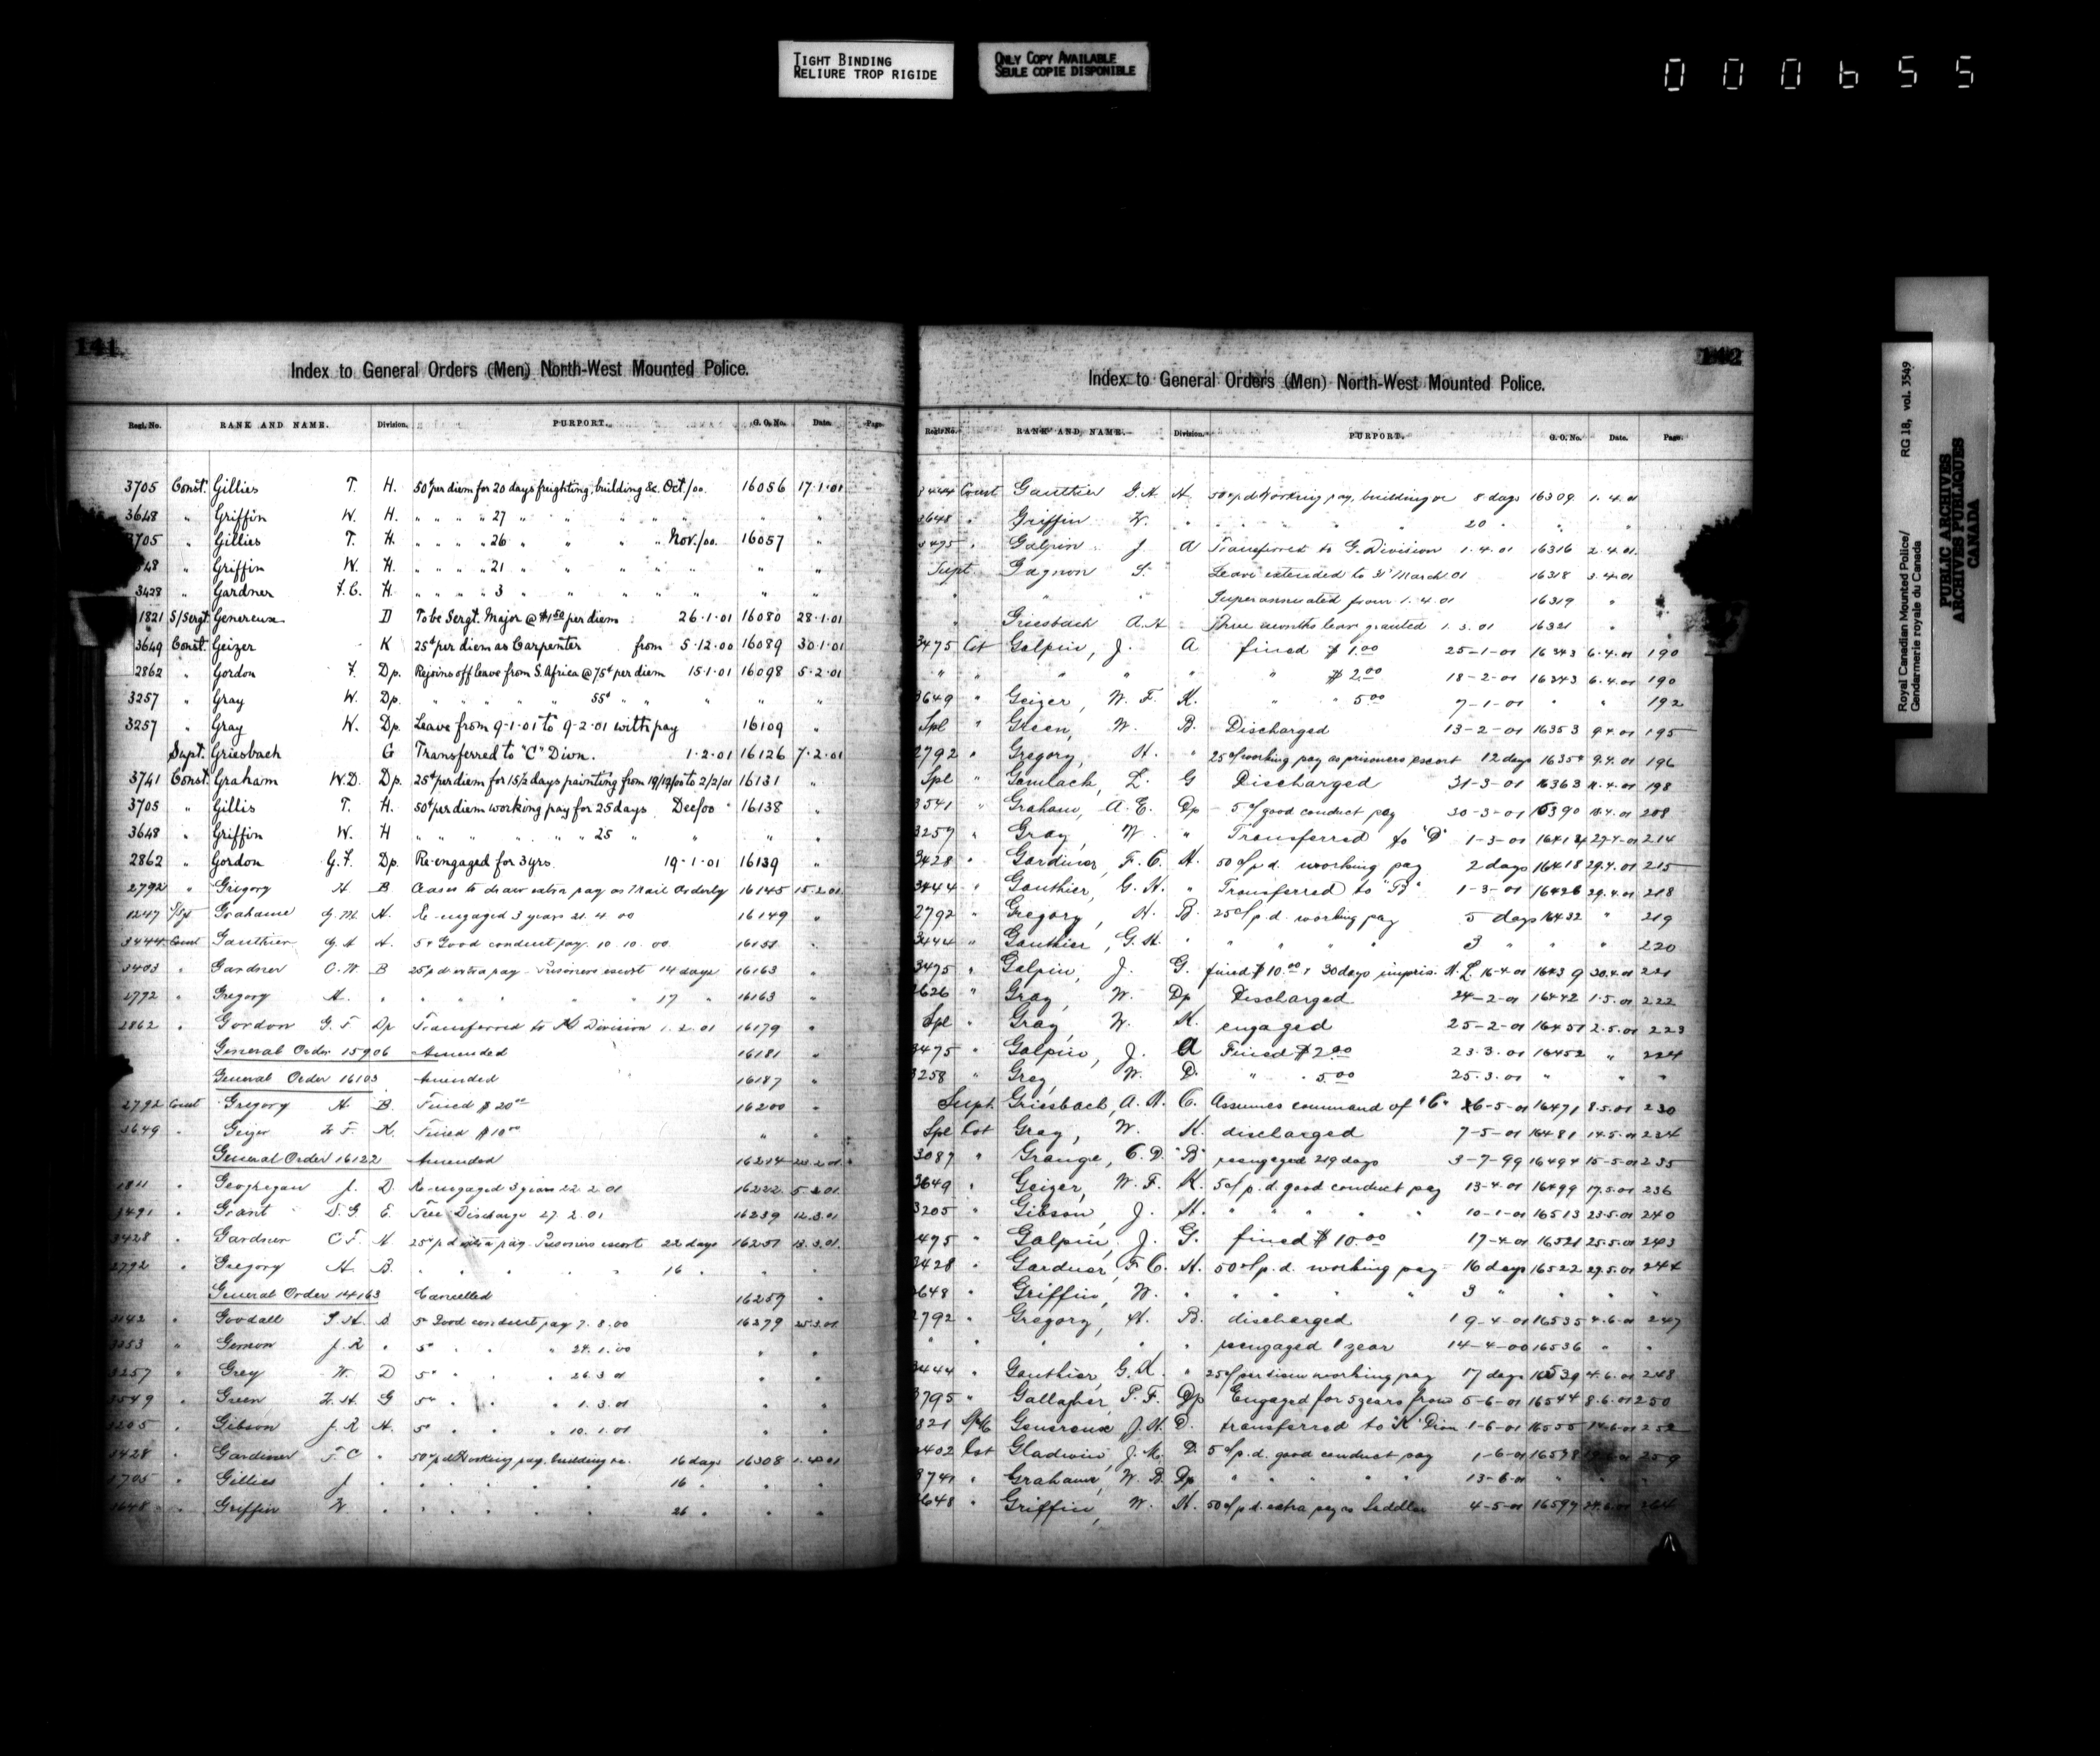 TIGHT BINDING
RELIURE TROP RIGIDE
ONLY COPY AVAILABLE
SEULE COPIE DISPONIBLE
000655
141
Index to General Orders (Men) North-West Mounted Police.
Regt. No. RANK AND NAME. Division. PURPORT. G. O. No. Date. Page
3705 Const. Gillies T. H. 50¢ per diem for 20 days freighting, building &c. Oct./00. 16056 17·1·01
3648 " Griffin W. H. " " " " 27 " " " " " " "
3705 " Gillies T. H. " " " " 26 " " " " Nov./00. 16057 "
3648 " Griffin W. H. " " " " 21 " " " " " " "
3428 " Gardner F.C. H. " " " " 3 " " " " " " "
1821 S/Sergt Genereux D To be Sergt. Major @ $1.50 per diem 26·1·01 16080 28·1·01
3649 Const. Geizer K 25¢ per diem as Carpenter from 5·12·00 16089 30·1·01
2862 " Gordon F. Dp. Rejoins off leave from S. Africa @ 75¢ per diem 15·1·01 16098 5·2·01
3257 " Gray W. Dp. " " " " " 55¢ " " " " "
3257 " Gray W. Dp. Leave from 9-1-01 to 9-2-01 with pay 16109 "
Supt. Griesbach G Transferred to "C" Divn. 1·2·01 16126 7·2·01
3741 Const. Graham W.D. Dp. 25¢ per diem for 15½ days painting from 19/12/00 to 2/2/01 16131 "
3705 " Gillis T. H. 50¢ per diem working pay for 25 days Dec/00 16138 "
3648 " Griffin W. H " " " " " " 25 " " "
2862 " Gordon G.F. Dp. Re-engaged for 3 yrs. 19-1-01 16139 "
2792 " Gregory H B Ceases to draw extra pay as Mail Orderly 16145 15·2·01
1247 S/Sgt Grahame G.M. H. Re-engaged 3 years 21.4.00 16149 "
3444 Const Gauthier G H H. 5¢ Good conduct pay. 10.10.00. 16151 "
3403 " Gardner C.W. B 25¢ p d extra pay - Prisoners escort 14 days 16163 "
2792 " Gregory H. " " " " " " 17 " 16163 "
2862 " Gordon G. F Dp Transferred to K Division 1.2.01 16179 "
General Order 15906 Amended 16181 "
General Order 16103 Amended 16187 "
2792 Const Gregory H B. Fined $20.00 16200 "
3649 " Geizer W F. K. Fined $10.00 " "
General Order 16122 Amended 16214 23.2.01
1811 " Geoghegan J. D. Re-engaged 3 years 22.2.01 16222 5.3.01
3491 " Grant D.G E. Free Discharge 27.2.01 16239 12.3.01
3428 " Gardner C F. H 25¢ p d extra pay. Prisoners escort 22 days 16251 13.3.01
2792 " Gregory H. B. " " " " " 16 " " "
General Order 14163 Cancelled 16259 "
3142 " Goodall S.H. D 5¢ Good conduct pay 7.8.00 16279 25.3.01
3353 " Gernon J.R " 5¢ " " " 24.1.00 " "
3257 " Grey W. D 5¢ " " " 26.3.01 " "
3549 " Green W.H. G 5¢ " " " 1.3.01 " "
3205 " Gibson J.R H. 5¢ " " " 10.1.01 " "
3428 " Gardiner F C " 50¢ p d Working pay, building &c. 16 days 16308 1.4.01
3705 " Gillies J " " " " " " 16 " " "
3648 " Griffin W. " " " " " " 26 " " "
142
Index to General Orders (Men) North-West Mounted Police.
Regt. No. RANK AND NAME. Division. PURPORT. G. O. No. Date. Page.
3444 Const Gauthier G.H H. 50¢ p d Working pay, building &c 8 days 16309 1.4.01
3648 " Griffin W. " " " " " 20 " " "
3475 " Galpin J. A Transferred to G. Division 1.4.01 16316 2.4.01
Supt. Gagnon S. Leave extended to 31st March 01 16318 3.4.01
" " " Superannuated from 1.4.01 16319 "
" Griesbach A.H Three months leave granted 1.5.01 16321 "
3475 Cst Galpin, J. A fined $1.00 25-1-01 16343 6.4.01 190
" " " " " " $2.00 18-2-01 16343 6.4.01 190
3649 " Geizer, W. F. K. " " 5.00 7-1-01 " " 192
Spl " Gleen, W. B. Discharged 13-2-01 16353 9.4.01 195
2792 " Gregory, H. " 25¢ working pay as prisoners escort 12 days 16354 9.4.01 196
Spl " Gamlack, L. G Discharged 31-3-01 16363 11.4.01 198
3541 " Graham, A. E. Dp 5¢ good conduct pay 30-3-01 16390 18.4.01 208
3257 " Gray, W. " Transferred to "D" 1-3-01 16413 27.4.01 214
3428 " Gardiner, F. C. H. 50¢ p.d. working pay 2 days 16418 29.4.01 215
3444 " Gauthier, G. H. " Transferred to "B" 1-3-01 16426 29.4.01 218
2792 " Gregory, H. B. 25¢ p.d. working pay 5 days 16432 " 219
3444 " Gauthier, G.H. " " " " " 3 " " " 220
3475 " Galpin, J. G. fined $10.00 & 30 days impris. H.L. 16-4-01 16439 30.4.01 221
2626 " Gray, W. Dp Discharged 24-2-01 16442 1.5.01 222
Spl " Gray, W. K. engaged 25-2-01 16451 2.5.01 223
3475 " Galpin, J. A Fined $2.00 23.3.01 16452 " 224
3258 " Grey, W. D. " " 5.00 25.3.01 " " "
Supt. Griesbach, A. H. C. Assumes command of "C" 6-5-01 16471 8.5.01 230
Spl Cst Gray, W. K. discharged 7-5-01 16481 14.5.01 234
3087 " Grange, C. D. "B" reengaged 219 days 3-7-99 16494 15-5-01 235
3649 " Geizer, W. F. K. 5¢ p.d. good conduct pay 13-4-01 16499 17.5.01 236
3205 " Gibson, J. H. " " " " " 10-1-01 16513 23.5.01 240
3475 " Galpin, J. G. fined $10.00 17-4-01 16521 25.5.01 243
3428 " Gardner, F C. H. 50¢ p.d. working pay 16 days 16522 29.5.01 244
3648 " Griffin, W. " " " " " 3 " " " "
2792 " Gregory, H. B. discharged 19-4-01 16535 4.6.01 247
" " " " " reengaged 1 year 14-4-00 16536 " "
3444 " Gauthier, G.H. " 25¢ per diem working pay 17 days 16539 4.6.01 248
3795 " Gallagher, P. F. Dp Engaged for 5 years from 5-6-01 16544 8.6.01 250
1821 Genereux, J.H. D. transferred to "K" Divn 1-6-01 16555 14.6.01 252
3402 Cst Gladwin, J. M. D. 5¢ p.d. good conduct pay 1-6-01 16578 259
3741 " Graham, W. D. Dp " " " " " 13-6-01 " "
3648 " Griffin, W. H. 50¢ p.d. extra pay as Saddler 4-5-01 16597 264
Royal Canadian Mounted Police/ RG 18, vol. 3549
Gendarmerie royale du Canada
PUBLIC ARCHIVES
ARCHIVES PUBLIQUES
CANADA